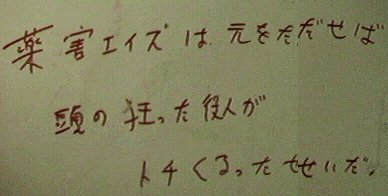 薬害エイズは元をただせば
頭の狂った役人が
トチくるったせいだ。